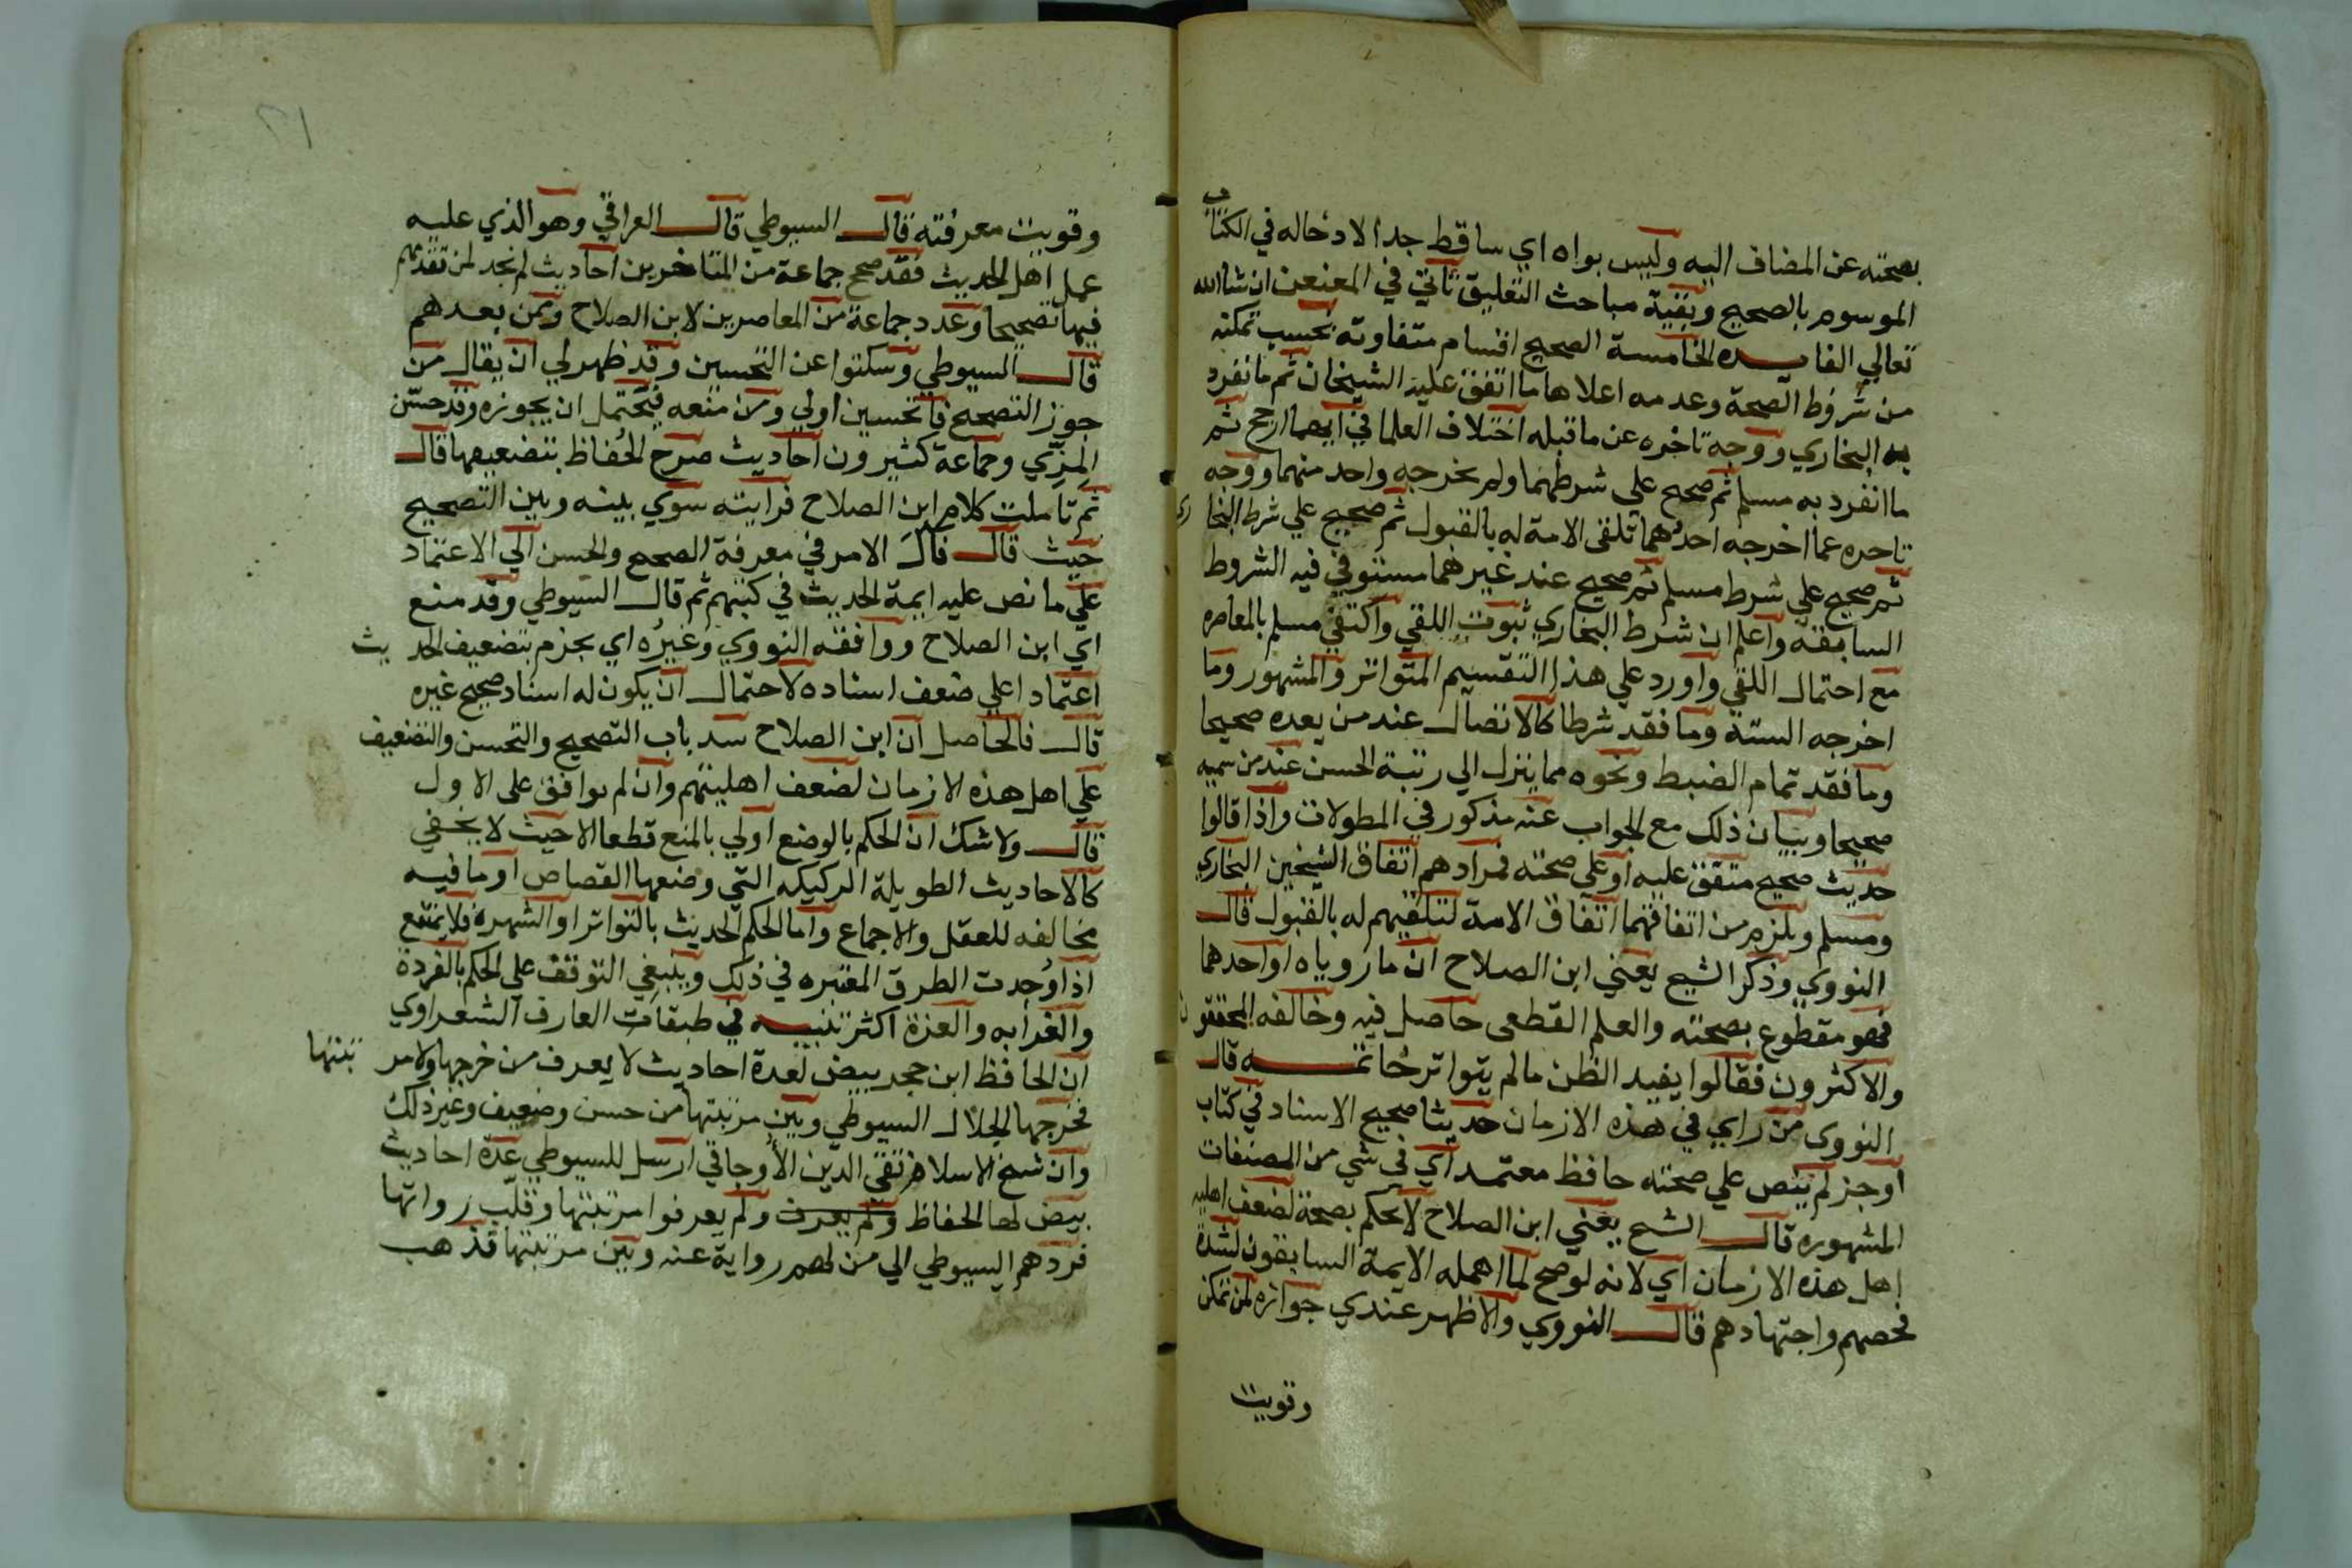 بصحته عن المضاف اليه وليس بواه اي ساقط جدا لادخاله في الكتاب
الموسوم بالصحيح وبقية مباحث التعليق تاتي في المعنعن ان شا الله
تعالي الفايده الخامسة الصحيح اقسام متفاوته بحسب تمكنه
من شروط الصحة وعدمه اعلاها ما اتفق عليه الشيخان ثم ما انفرد
به البخاري ووجه تاخره عن ما قبله اختلاف العلما في ايهما ارجح ثم
ما انفرد به مسلم ثم صحيح علي شرطهما ولم يخرجه واحد منهما ووجه
تاخره عما اخرجه احدهما تلقى الامة له بالقبول ثم صحيح علي شرط البخاري
ثم صحيح علي شرط مسلم ثم صحيح عند غيرهما مستوفي فيه الشروط
السابقه واعلم ان شرط البخاري ثبوت اللقي واكتفي مسلم بالمعاصره
مع احتمال اللقي واورد علي هذا التقسيم المتواتر والمشهور وما
اخرجه الستة وما فقد شرطا كالاتصال عند من يعده صحيحا
وما فقد تمام الضبط ونحوه مما ينزل الي رتبة الحسن عند من سميه
صحيحا وبيان ذلك مع الجواب عنه مذكور في المطولات واذا قالوا
حديث صحيح متفق عليه او علي صحته فمرادهم اتفاق الشيخين البخاري
ومسلم ويلزم من اتفاقهما اتفاق الامة لتلقيهم له بالقبول قال
النووي وذكر الشيخ يعني ابن الصلاح ان ما روياه او احدهما
فهو مقطوع بصحته والعلم القطعي حاصل فيه وخالفه المحققون
والاكثرون فقالوا يفيد الظن ما لم يتواتر خاتمه قال
النووي من راي في هذه الازمان حديثا صحيح الاسناد في كتاب
او جز لم ينص علي صحته حافظ معتمد اي في شي من المصنفات
المشهوره قال الشيخ يعني ابن الصلاح لا يحكم بصحة لضعف اهليه
اهل هذه الازمان اي لانه لو صح لما اهمله الايمة السابقون لشدة
فحصهم واجتهادهم قال النووي والاظهر عندي جوازه لمن تمكن
وقويت
وقويت معرفته قال السيوطي قال العراقي وهو الذي عليه
عمل اهل الحديث فقد صحح جماعة من المتاخرين احاديث لم نجد لمن تقدمهم
فيها تصحيحا وعدد جماعة من المعاصرين لابن الصلاح وممن بعدهم
قال السيوطي وسكتوا عن التحسين وقد ظهر لي ان يقال من
جوز التصحيح فالتحسين اولي ومن منعه فيحتمل ان يجوزه وقد حسّن
المِزّي وجماعة كثيرون احاديث صرح الحُفاظ بتضعيفها قال
ثم تاملت كلام ابن الصلاح فرايته سوي بينه وبين التصحيح
حيث قال فآل الامر في معرفة الصحيح والحسن الي الاعتماد
علي ما نص عليه ايمة الحديث في كتبهم ثم قال السيوطي وقد منع
اي ابن الصلاح ووافقه النووي وغيره اي بجزم بتضعيف الحديث
اعتمادا علي ضعف اسناده لاحتمال ان يكون له اسناد صحيح غيره
قال فالحاصل ان ابن الصلاح سد باب التصحيح والتحسن والتضعيف
علي اهل هذه الازمان لضعف اهليتهم وان لم يوافق على الاول
قال ولا شك ان الحكم بالوضع اولي بالمنع قطعا الا حيث لا يخفي
كالاحاديث الطويلة الركيكه التي وضعها القصاص او ما فيه
مخالفه للعقل والاجماع واما الحكم للحديث بالتواتر او الشهرة فلا يمتنع
اذا وُجدت الطرق المعتبره في ذلك وينبغي التوقف علي الحكم بالفردة
والغرابه والعزة اكثر تنبيه في طبقات العارف الشعراوي
ان الحافظ ابن حجر بيض لعدة احاديث لا يعرف من خرجها ولا مرتبتها
فخرجها الجلال السيوطي وبين مرتبتها من حسن وضعيف وغير ذلك
وان شيخ الاسلام تقي الدين الأوجاقي ارسل للسيوطي عدة احاديث
بيض لها الحفاظ ولم يعرف ولم يعرفوا مرتبتها وقلّب رواتها
فردهم السيوطي الي من لهم رواية عنه وبين مرتبتها فذهب